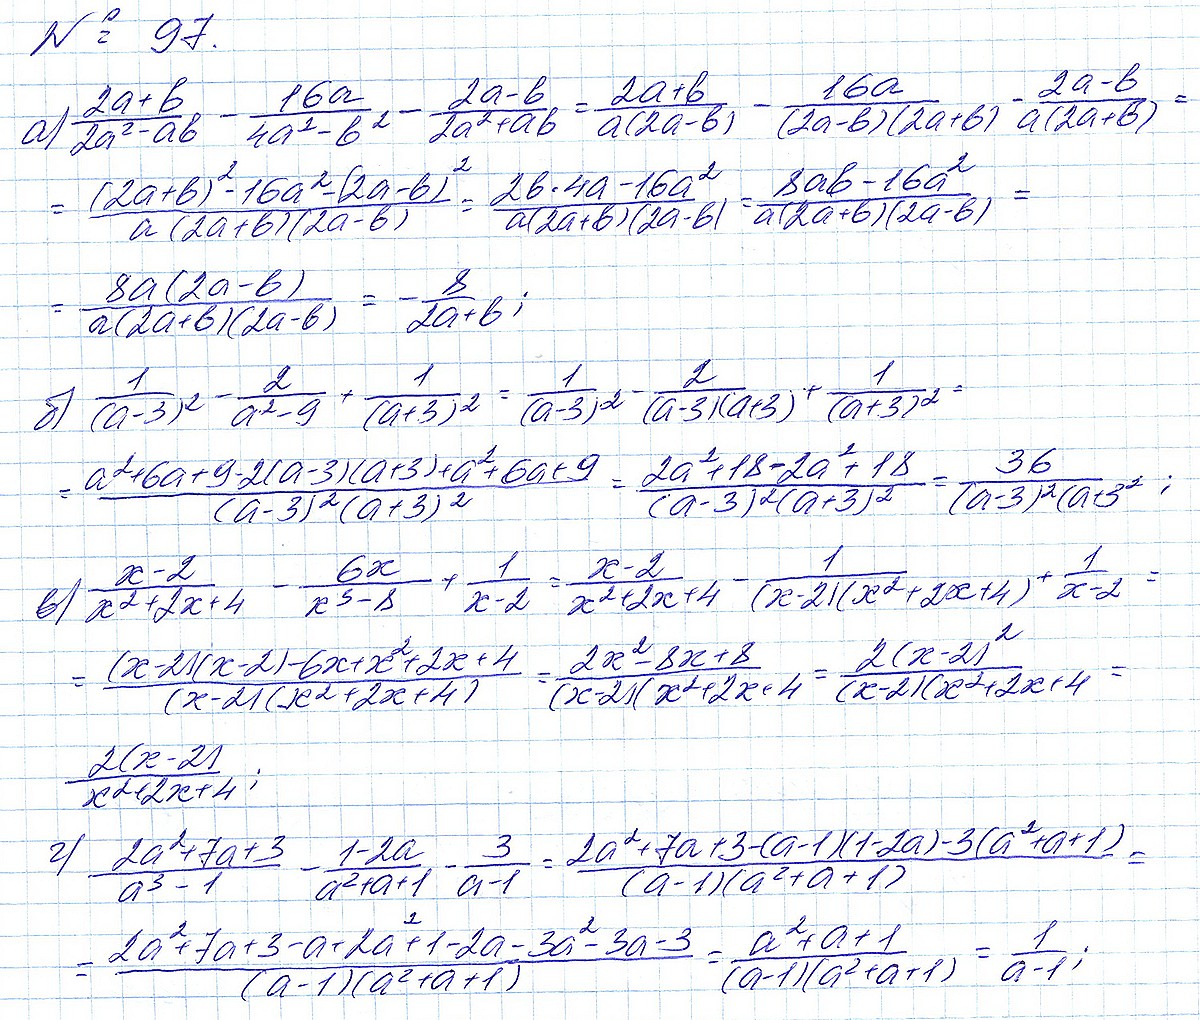 № 97.
а) (2a+b)/(2a²-ab) - 16a/(4a²-b²) - (2a-b)/(2a²+ab) = (2a+b)/(a(2a-b)) - 16a/((2a-b)(2a+b)) - (2a-b)/(a(2a+b)) =
= ((2a+b)²-16a²-(2a-b)²)/(a(2a+b)(2a-b)) = (2b·4a-16a²)/(a(2a+b)(2a-b)) = (8ab-16a²)/(a(2a+b)(2a-b)) =
= 8a(2a-b)/(a(2a+b)(2a-b)) = -8/(2a+b);
б) 1/(a-3)² - 2/(a²-9) + 1/(a+3)² = 1/(a-3)² - 2/((a-3)(a+3)) + 1/(a+3)² =
= (a²+6a+9-2(a-3)(a+3)+a²+6a+9)/((a-3)²(a+3)²) = (2a²+18-2a²+18)/((a-3)²(a+3)²) = 36/((a-3)²(a+3²;
в) (x-2)/(x²+2x+4) - 6x/(x³-8) + 1/(x-2) = (x-2)/(x²+2x+4) - 1/((x-2)(x²+2x+4)) + 1/(x-2) =
= ((x-2)(x-2)-6x+x²+2x+4)/((x-2)(x²+2x+4)) = (2x²-8x+8)/((x-2)(x²+2x+4 = 2(x-2)²/((x-2)(x²+2x+4 =
2(x-2)/(x²+2x+4);
г) (2a²+7a+3)/(a³-1) - (1-2a)/(a²+a+1) - 3/(a-1) = (2a²+7a+3-(a-1)(1-2a)-3(a²+a+1))/((a-1)(a²+a+1)) =
= (2a²+7a+3-a+2a²+1-2a-3a²-3a-3)/((a-1)(a²+a+1)) = (a²+a+1)/((a-1)(a²+a+1)) = 1/(a-1);